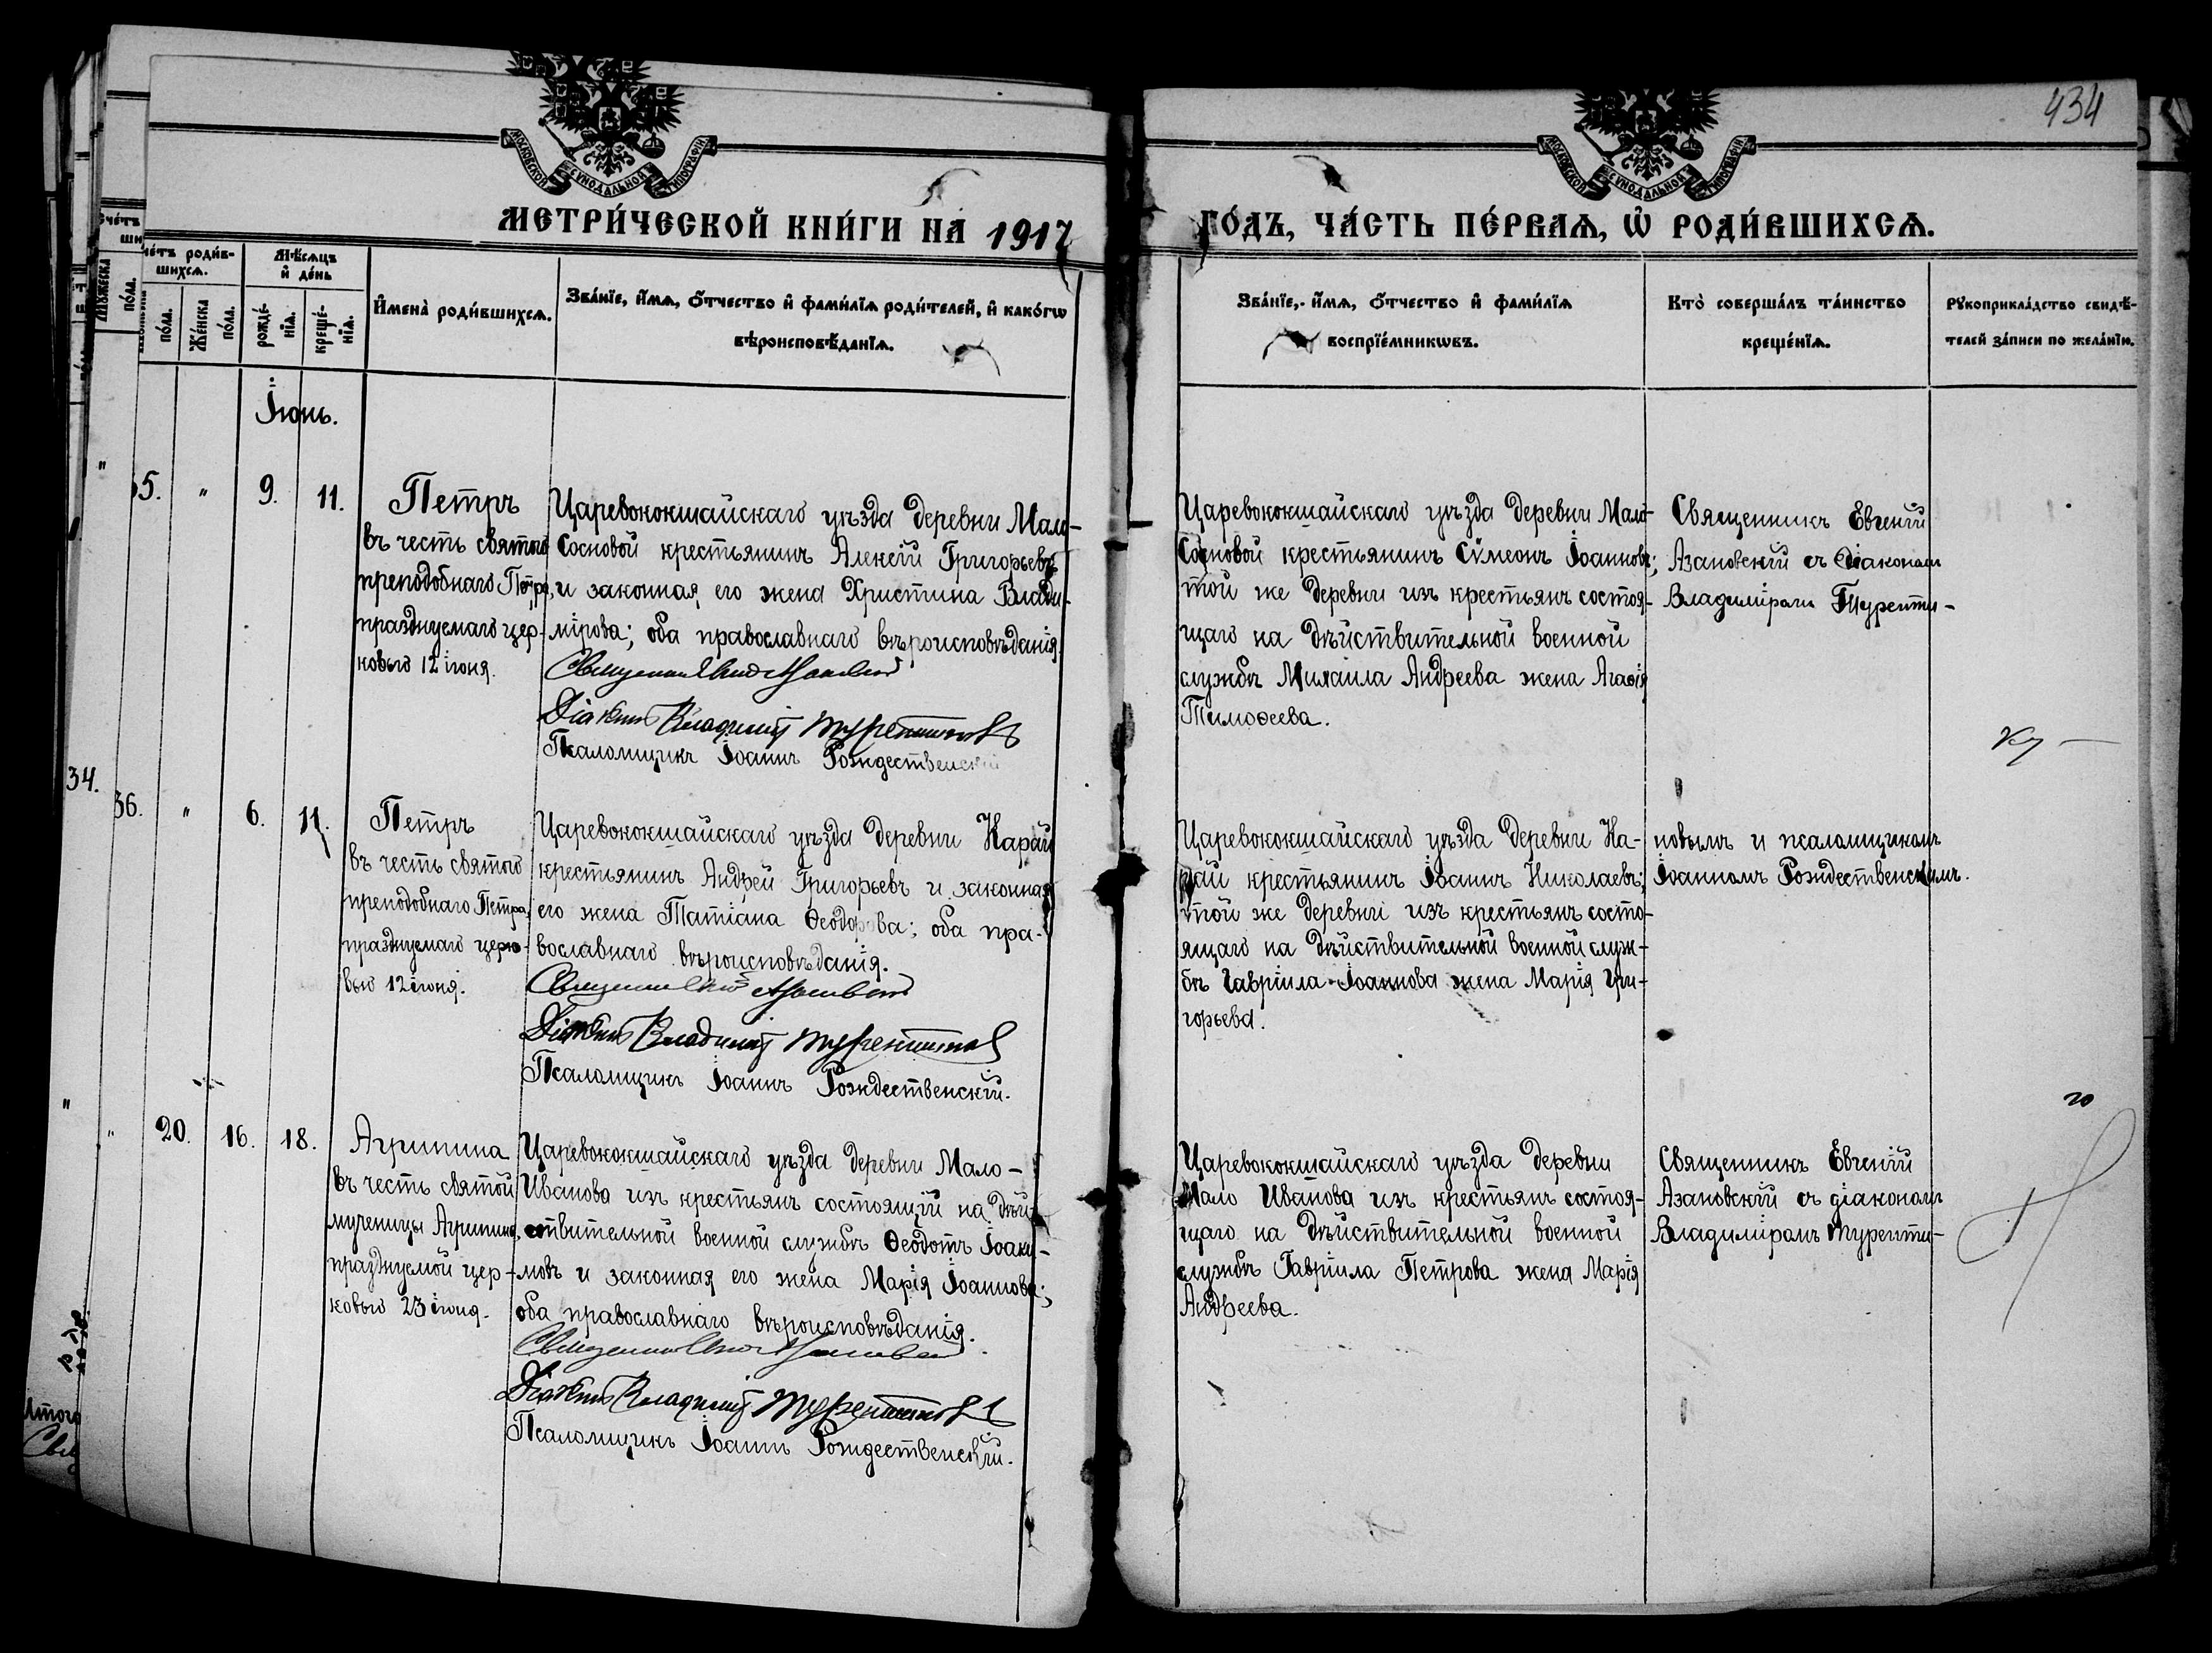 434
МОСКОВСКОЙ СѴНОДАЛЬНОЙ ТИПОГРАФІИ
МОСКОВСКОЙ СѴНОДАЛЬНОЙ ТИПОГРАФІИ
МЕТРИ́ЧЕСКОЙ КНИ́ГИ НА 1917
ГО́ДЪ, ЧА́СТЬ ПЕ́РВАѦ, Ѡ҆ РОДИ́ВШИХСѦ.
Мѣ́сѧцъ
и҆ де́нь
шихсѧ.
по́ла.
Же́нска
по́ла.
рожде́-
нїѧ.
креще́-
нїѧ.
И҆мена̀ роди́вшихсѧ.
Зва́нїе, и҆́мѧ, ѻ҆́тчество и҆ фами́лїѧ роди́телей, и҆ како́гѡ
вѣроисповѣ́данїѧ.
Зва́нїе, и҆́мѧ, ѻ҆́тчество и҆ фами́лїѧ
воспрїе́мникѡвъ.
Кто̀ соверша́лъ та́инство
креще́нїѧ.
Рꙋкоприкла́дство свидѣ́-
телей за́писи по жела́нїю.
Іюнь.
35. " 9. 11.
Петръ
въ честь святого
преподобнаго Петра,
празднуемаго цер-
ковью 12 іюня.
Царевококшайскаго уѣзда деревни Мало-
Сосновой крестьянинъ Алексій Григорьевъ
и законная его жена Христина Влади-
мірова; оба православнаго вѣроисповѣданія.
Діаконъ Владимір Турентиновъ
Псаломщикъ Іоаннъ Рождественскій
Царевококшайскаго уѣзда деревни Мало-
Сосновой крестьянинъ Сѵмеонъ Іоанновъ;
той же деревни изъ крестьянъ состоя-
щаго на дѣйствительной военной
службѣ Михаила Андреева жена Агаѳія
Тимоѳеева.
Священникъ Евгеній
Азановскій съ діакономъ
Владиміромъ Туренти-
34.
36. " 6. 11.
Петръ
въ честь святого
преподобнаго Петра,
празднуемаго церко-
вью 12 іюня.
Царевококшайскаго уѣзда деревни Карай
крестьянинъ Андрей Григорьевъ и законная
его жена Татіана Ѳеодорова; оба пра-
вославнаго вѣроисповѣданія.
Діаконъ Владимір Турентинов
Псаломщикъ Іоаннъ Рождественскій.
Царевококшайскаго уѣзда деревни Ка-
рай крестьянинъ Іоаннъ Николаевъ;
той же деревни изъ крестьянъ состо-
ящаго на дѣйствительной военной служ-
бѣ Гавріила Іоаннова жена Марія Гри-
горьева.
новымъ и псаломщикомъ
Іоанномъ Рождественскимъ.
" 20. 16. 18.
Агрипина
въ честь святой
мученицы Агрипины,
празднуемой цер-
ковью 23 іюня.
Царевококшайскаго уѣзда деревни Мало-
Иванова изъ крестьянъ состоящій на дѣй-
ствительной военной службѣ Ѳеодотъ Іоаки-
мовъ и законная его жена Марія Іоаннова;
оба православнаго вѣроисповѣданія.
Діаконъ Владимір Турентиновъ
Псаломщикъ Іоаннъ Рождественскій.
Царевококшайскаго уѣзда деревни
Мало Иванова изъ крестьянъ состоя-
щаго на дѣйствительной военной
службѣ Гавріила Петрова жена Марія
Андреева.
Священникъ Евгеній
Азановскій съ діакономъ
Владиміромъ Туренти-